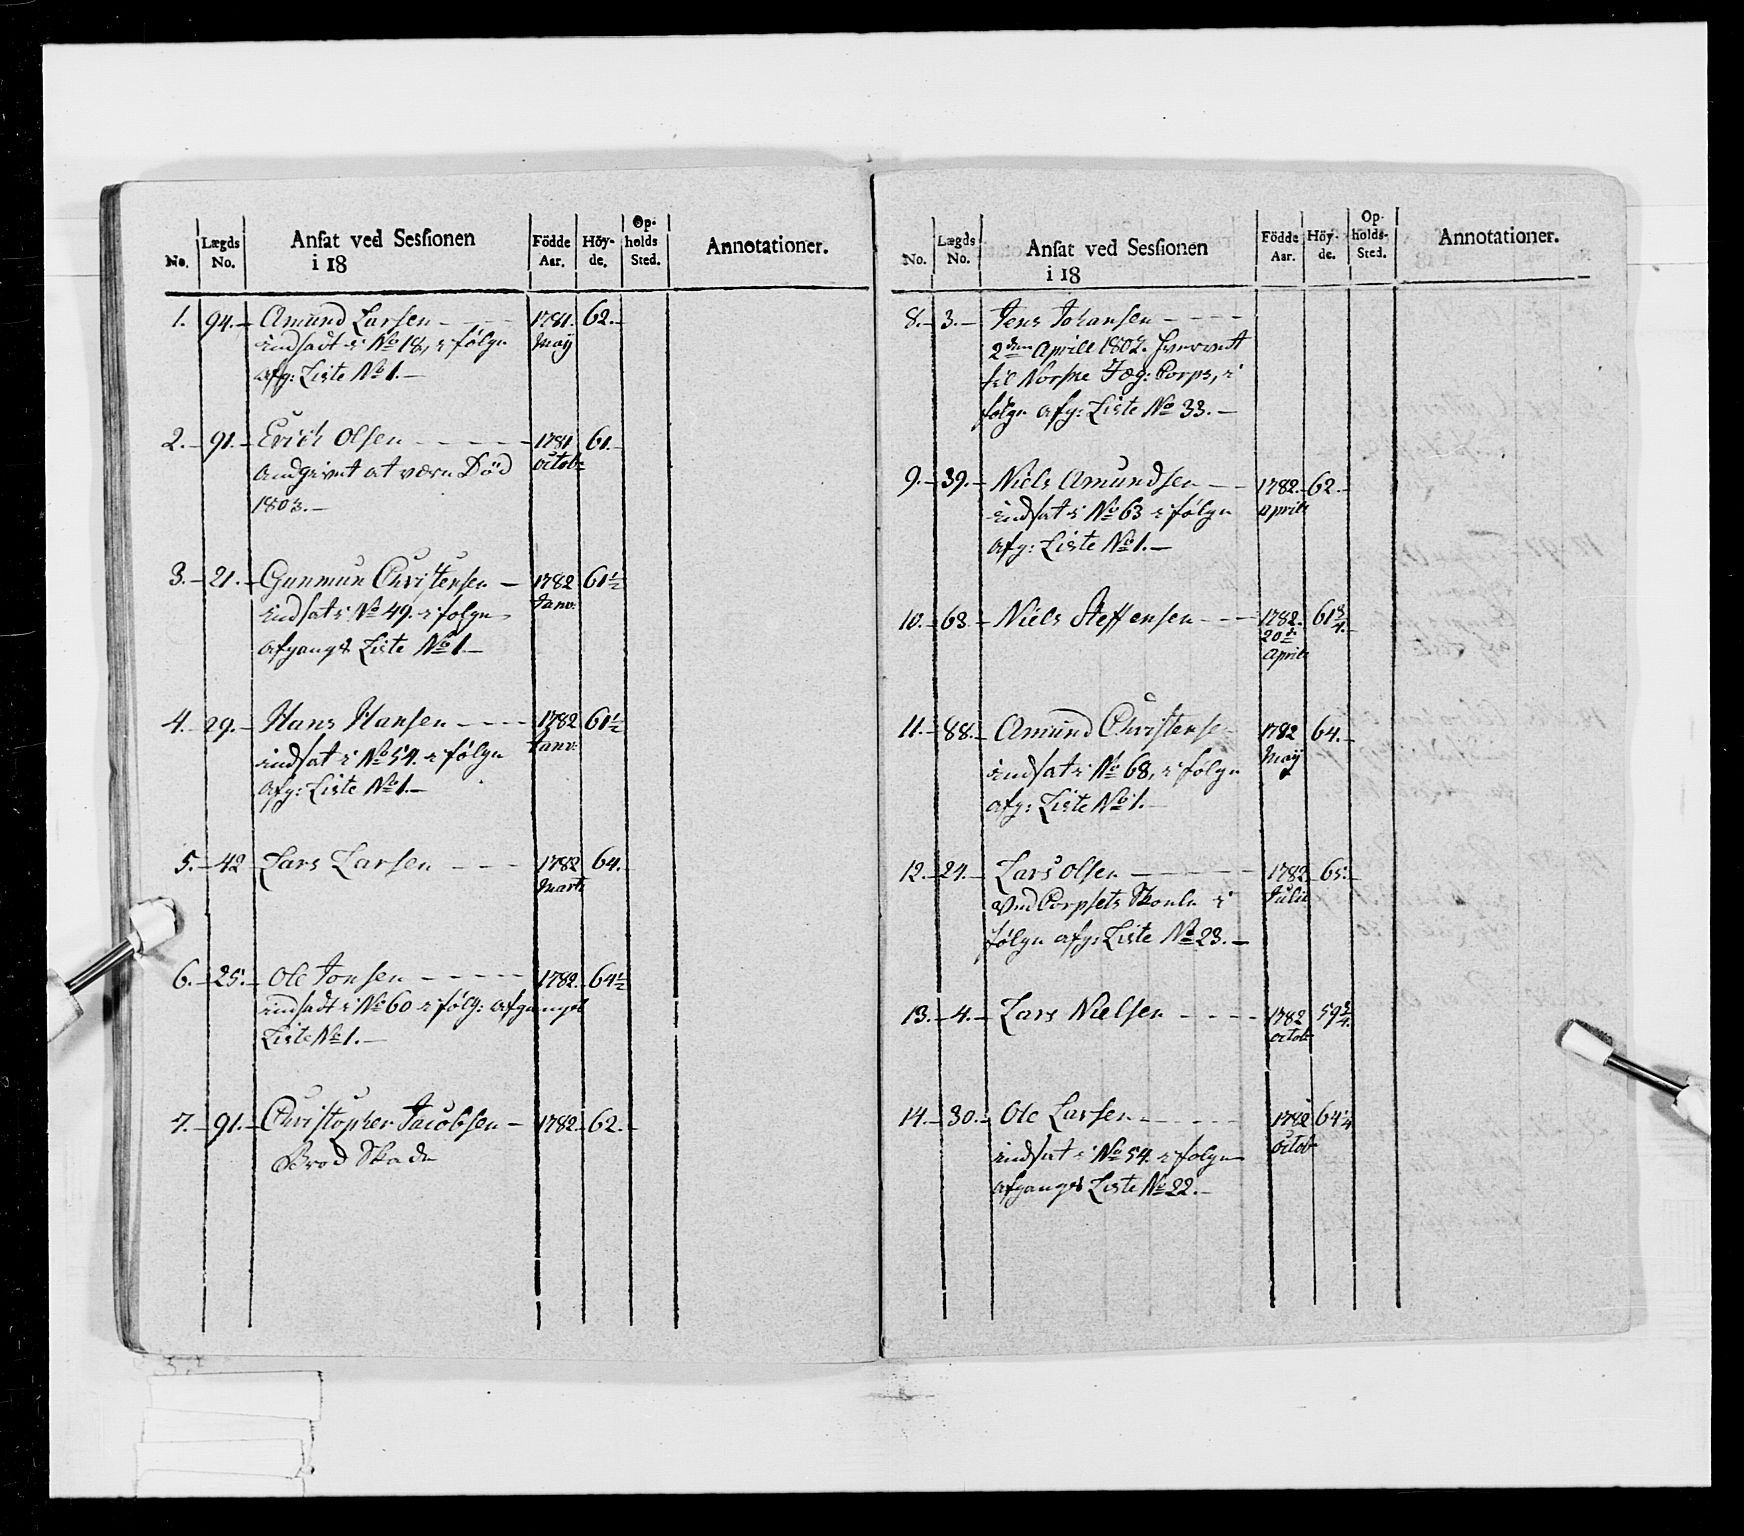 No. Lægds No. Ansat ved Sessionen i 18 Födde Aar. Höy-de. Op-holds Sted. Annotationer.
1. 94. Amund Larsen 1781. 62.
indsadt i No 18, i følge May
afg: Liste No 1.
2. 91. Erich Olsen 1781 61.
andgivet at være Död octobr
1803.
3. 21. Gunmun Christensen 1782 61 1/2
indsat i No 49. i følge Janv:
afgangs Liste No 1.
4. 29. Hans Hansen 1782 61 1/2
indsat i No 54. i følge Janv:
afg: Liste No 1.
5. 42 Lars Larsen 1782 64.
Marti
6. 25. Ole Jonsen 1782. 64 1/2
indsadt i No 60 i følg: afgangs
Liste No 1.
7. 91. Christopher Jacobsen 1782. 62.
Brod Skade
No. Lægds No. Ansat ved Sessionen i 18 Födde Aar. Höy-de. Op-holds-Sted. Annotationer.
8. 3. Jens Johansen
2den Aprill 1802. hvervet
til Norske Jæg: Corps, i
følge afg: Liste No 33.
9. 39. Niels Amundsen 1782. 62.
indsat i No 63 i følge Aprili
afg: Liste No 1.
10. 63. Niels Steffensen 1782. 61 3/4.
20de
Aprili
11. 88. Amund Christense 1782 64.
indsat i No 68, i følge May
afg: Liste No 1.
12. 24. Lars Olsen 1782 65.
ved Corpsets Skoele i Julii
følge afg: Liste No 23.
13. 4. Lars Nielsen 1782 59 3/4.
octob
14. 30. Ole Larsen 1782 64 1/4
indsat i No 54. i følge Octob
afgangs Liste No 22.